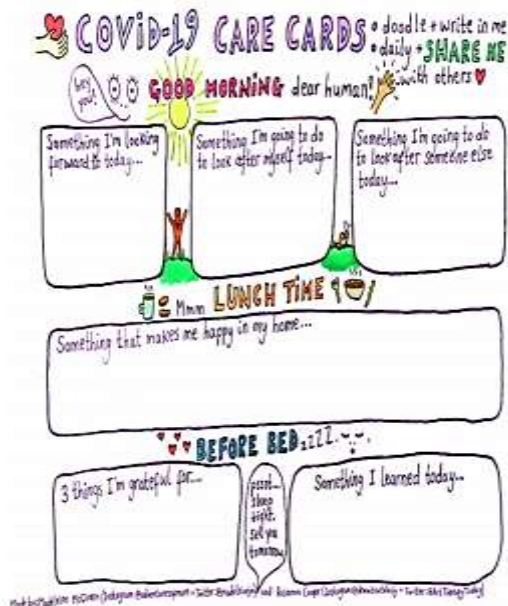 COViD-19 CARE CARDS
• doodle + write in me
• daily + SHARE ME
with others
hey you!
GOOD MORNING dear human!
Something I'm looking
forward to today...
Something I'm going to do
to look after myself today...
Something I'm going to do
to look after someone else
today...
Mmm LUNCH TIME
Something that makes me happy in my home...
BEFORE BED zzzz
3 things I'm grateful for...
psst...
sleep
tight.
see you
tomorrow
Something I learned today...